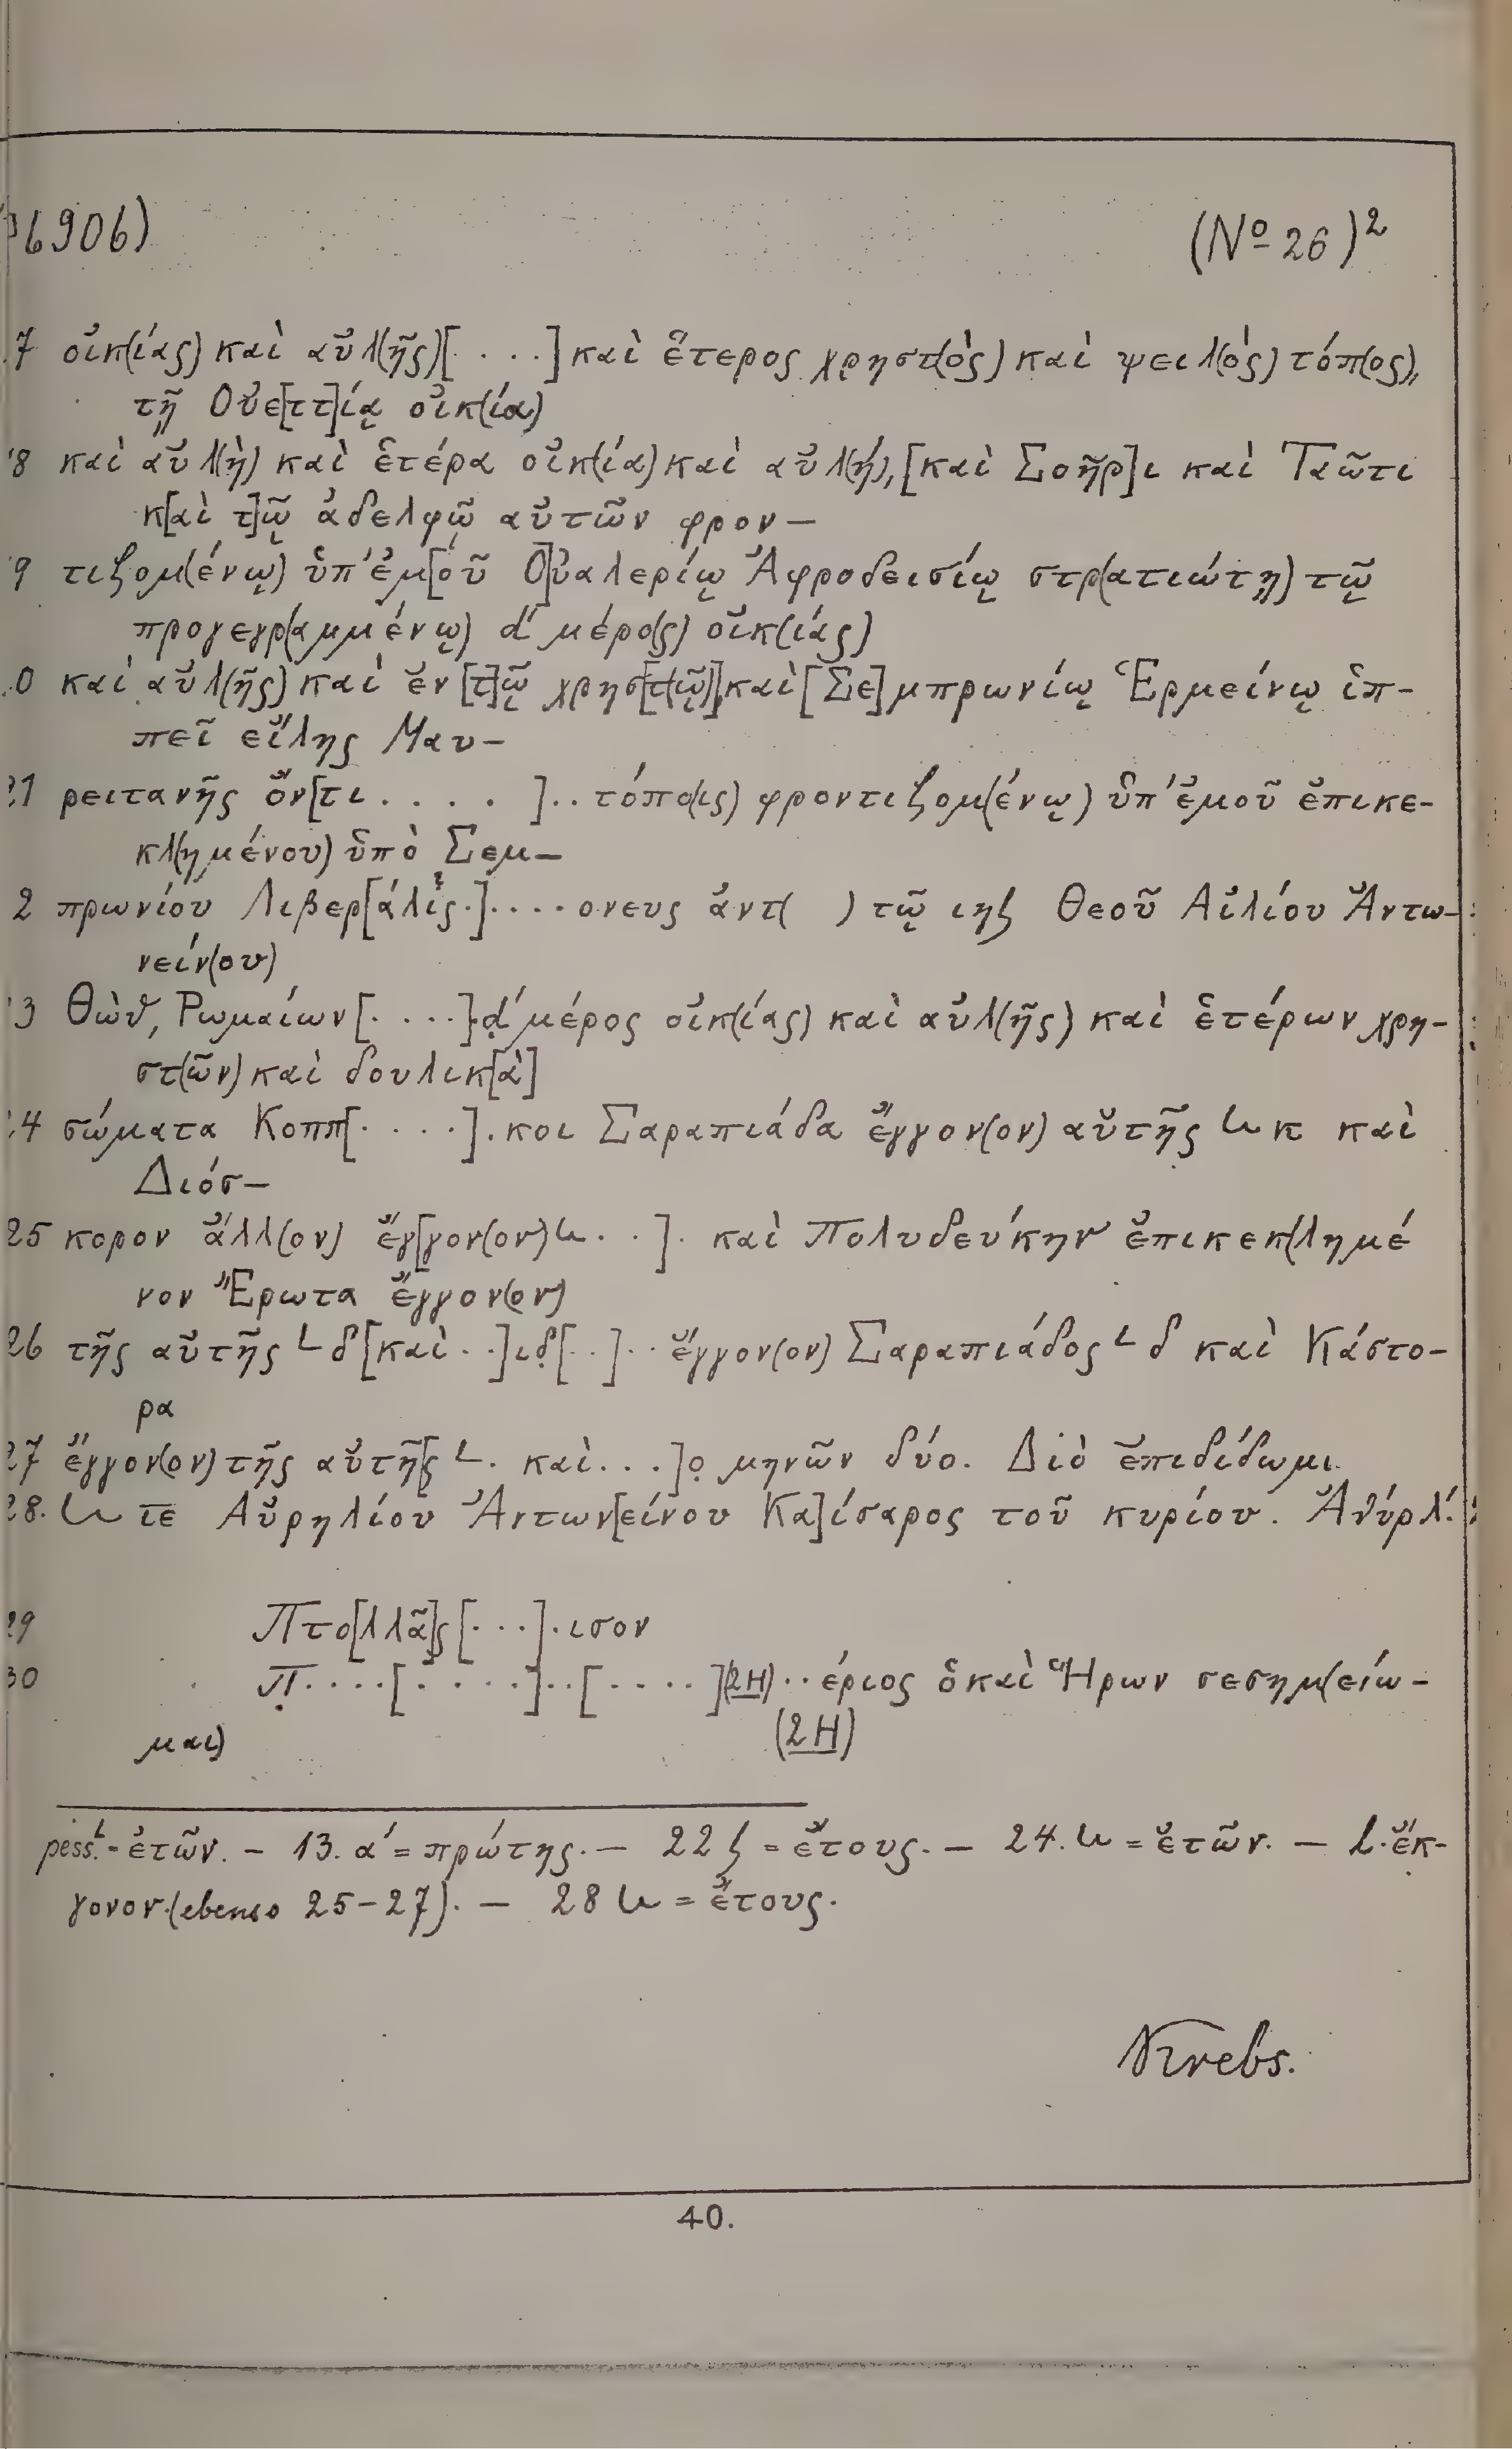 P6906) (No 26)2
17 οἰκ(ίας) καὶ αὐλ(ῆς)[. . . .] καὶ ἕτερος χρηστ(ὸς) καὶ ψειλ(ὸς) τόπ(ος),
τῇ Οὐε[ττ]ίᾳ οἰκ(ία)
18 καὶ αὐλ(ὴ) καὶ ἑτέρα οἰκ(ία) καὶ αὐλ(ή), [καὶ Σοῆρ]ι καὶ Ταῶτι
κ[αὶ τ]ῷ ἀδελφῷ αὐτῶν φρον-
19 τιζομ(ένῳ) ὑπ' ἐμ[οῦ Ο]ὐαλερίῳ Ἀφροδεισίῳ στρ(ατιώτῃ) τῷ
προγεγρ(αμμένῳ) δ' μέρο(ς) οἰκ(ίας)
20 καὶ αὐλ(ῆς) καὶ ἐν [τ]ῷ χρησ[τ(ῷ)], καὶ [Σε]μπρωνίῳ Ἑρμείνῳ ἱπ-
πεῖ εἴλης Μαυ-
21 ρειτανῆς ὄν[τι . . . . ]. . τόπο(ις) φροντιζομ(ένῳ) ὑπ' ἐμοῦ ἐπικε-
κλ(ημένου) ὑπὸ Σεμ-
22 πρωνίου Λιβερ[άλις .]. . . . ονευς ἀντ( ) τῷ ιηϛ Θεοῦ Αἰλίου Ἀντω-
νείν(ου)
23 Θὼθ, Ρωμαίων [. . . .]. δ' μέρος οἰκ(ίας) καὶ αὐλ(ῆς) καὶ ἑτέρων χρη-
στ(ῶν) καὶ δουλικ[ὰ]
24 σώματα Κοππ[. . . .]. κοι Σαραπιάδα ἔγγον(ον) αὐτῆς L κ καὶ
Διόσ-
25 κορον ἄλλ(ον) ἔγ[γον(ον) L . . ]. καὶ Πολυδεύκην ἐπικεκ(λημέ
νον Ἔρωτα ἔγγον(ον)
26 τῆς αὐτῆς L δ [καὶ . .]ιδ[. . ]. . ἔγγον(ον) Σαραπιάδος L δ καὶ Κάστο-
ρα
27 ἔγγον(ον) τῆς αὐτῆ[ς L. καὶ. . .]ο μηνῶν δύο. Διὸ ἐπιδίδωμι.
28. L ιε Αὐρηλίου Ἀντων[είνου Κα]ίσαρος τοῦ κυρίου. Ἀθύρ λ'.
29 Πτο[λλᾶ]ς [. . .]. ισον
30 Π. . . . [. . . . .]. . [. . . . ](2H). . έριος ὁ καὶ Ἥρων σεσημ(είω-
μαι) (2H)
pess. L = ἐτῶν. – 13. α' = πρώτης. – 22 ϛ = ἔτους. – 24. L = ἐτῶν. – l. ἔκ-
γονον (ebenso 25-27). – 28 L = ἔτους.
Krebs.
40.